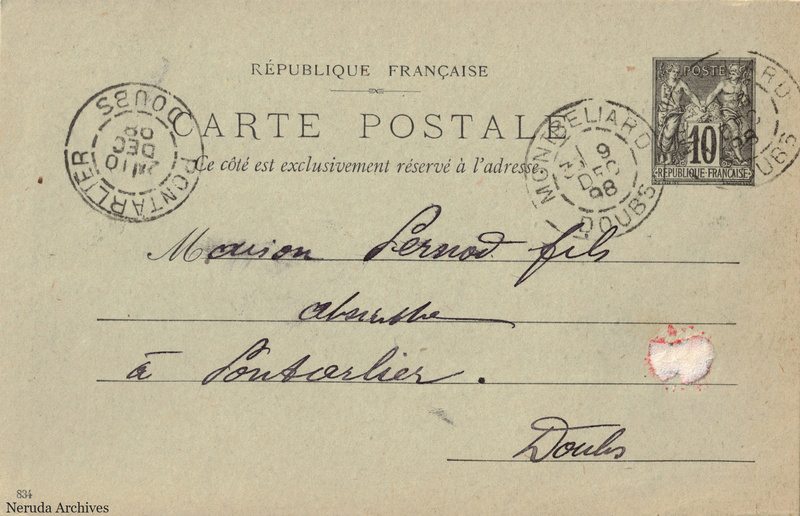 RÉPUBLIQUE FRANÇAISE
CARTE POSTALE
Ce côté est exclusivement réservé à l'adresse.
POSTE
10
RÉPUBLIQUE FRANÇAISE
PONTARLIER DOUBS
DEC
98
MONTBELIARD
DEC
98
DOUBS
Maison Pernod fils
absinthe
à Pontarlier.
Doubs
834
Neruda Archives